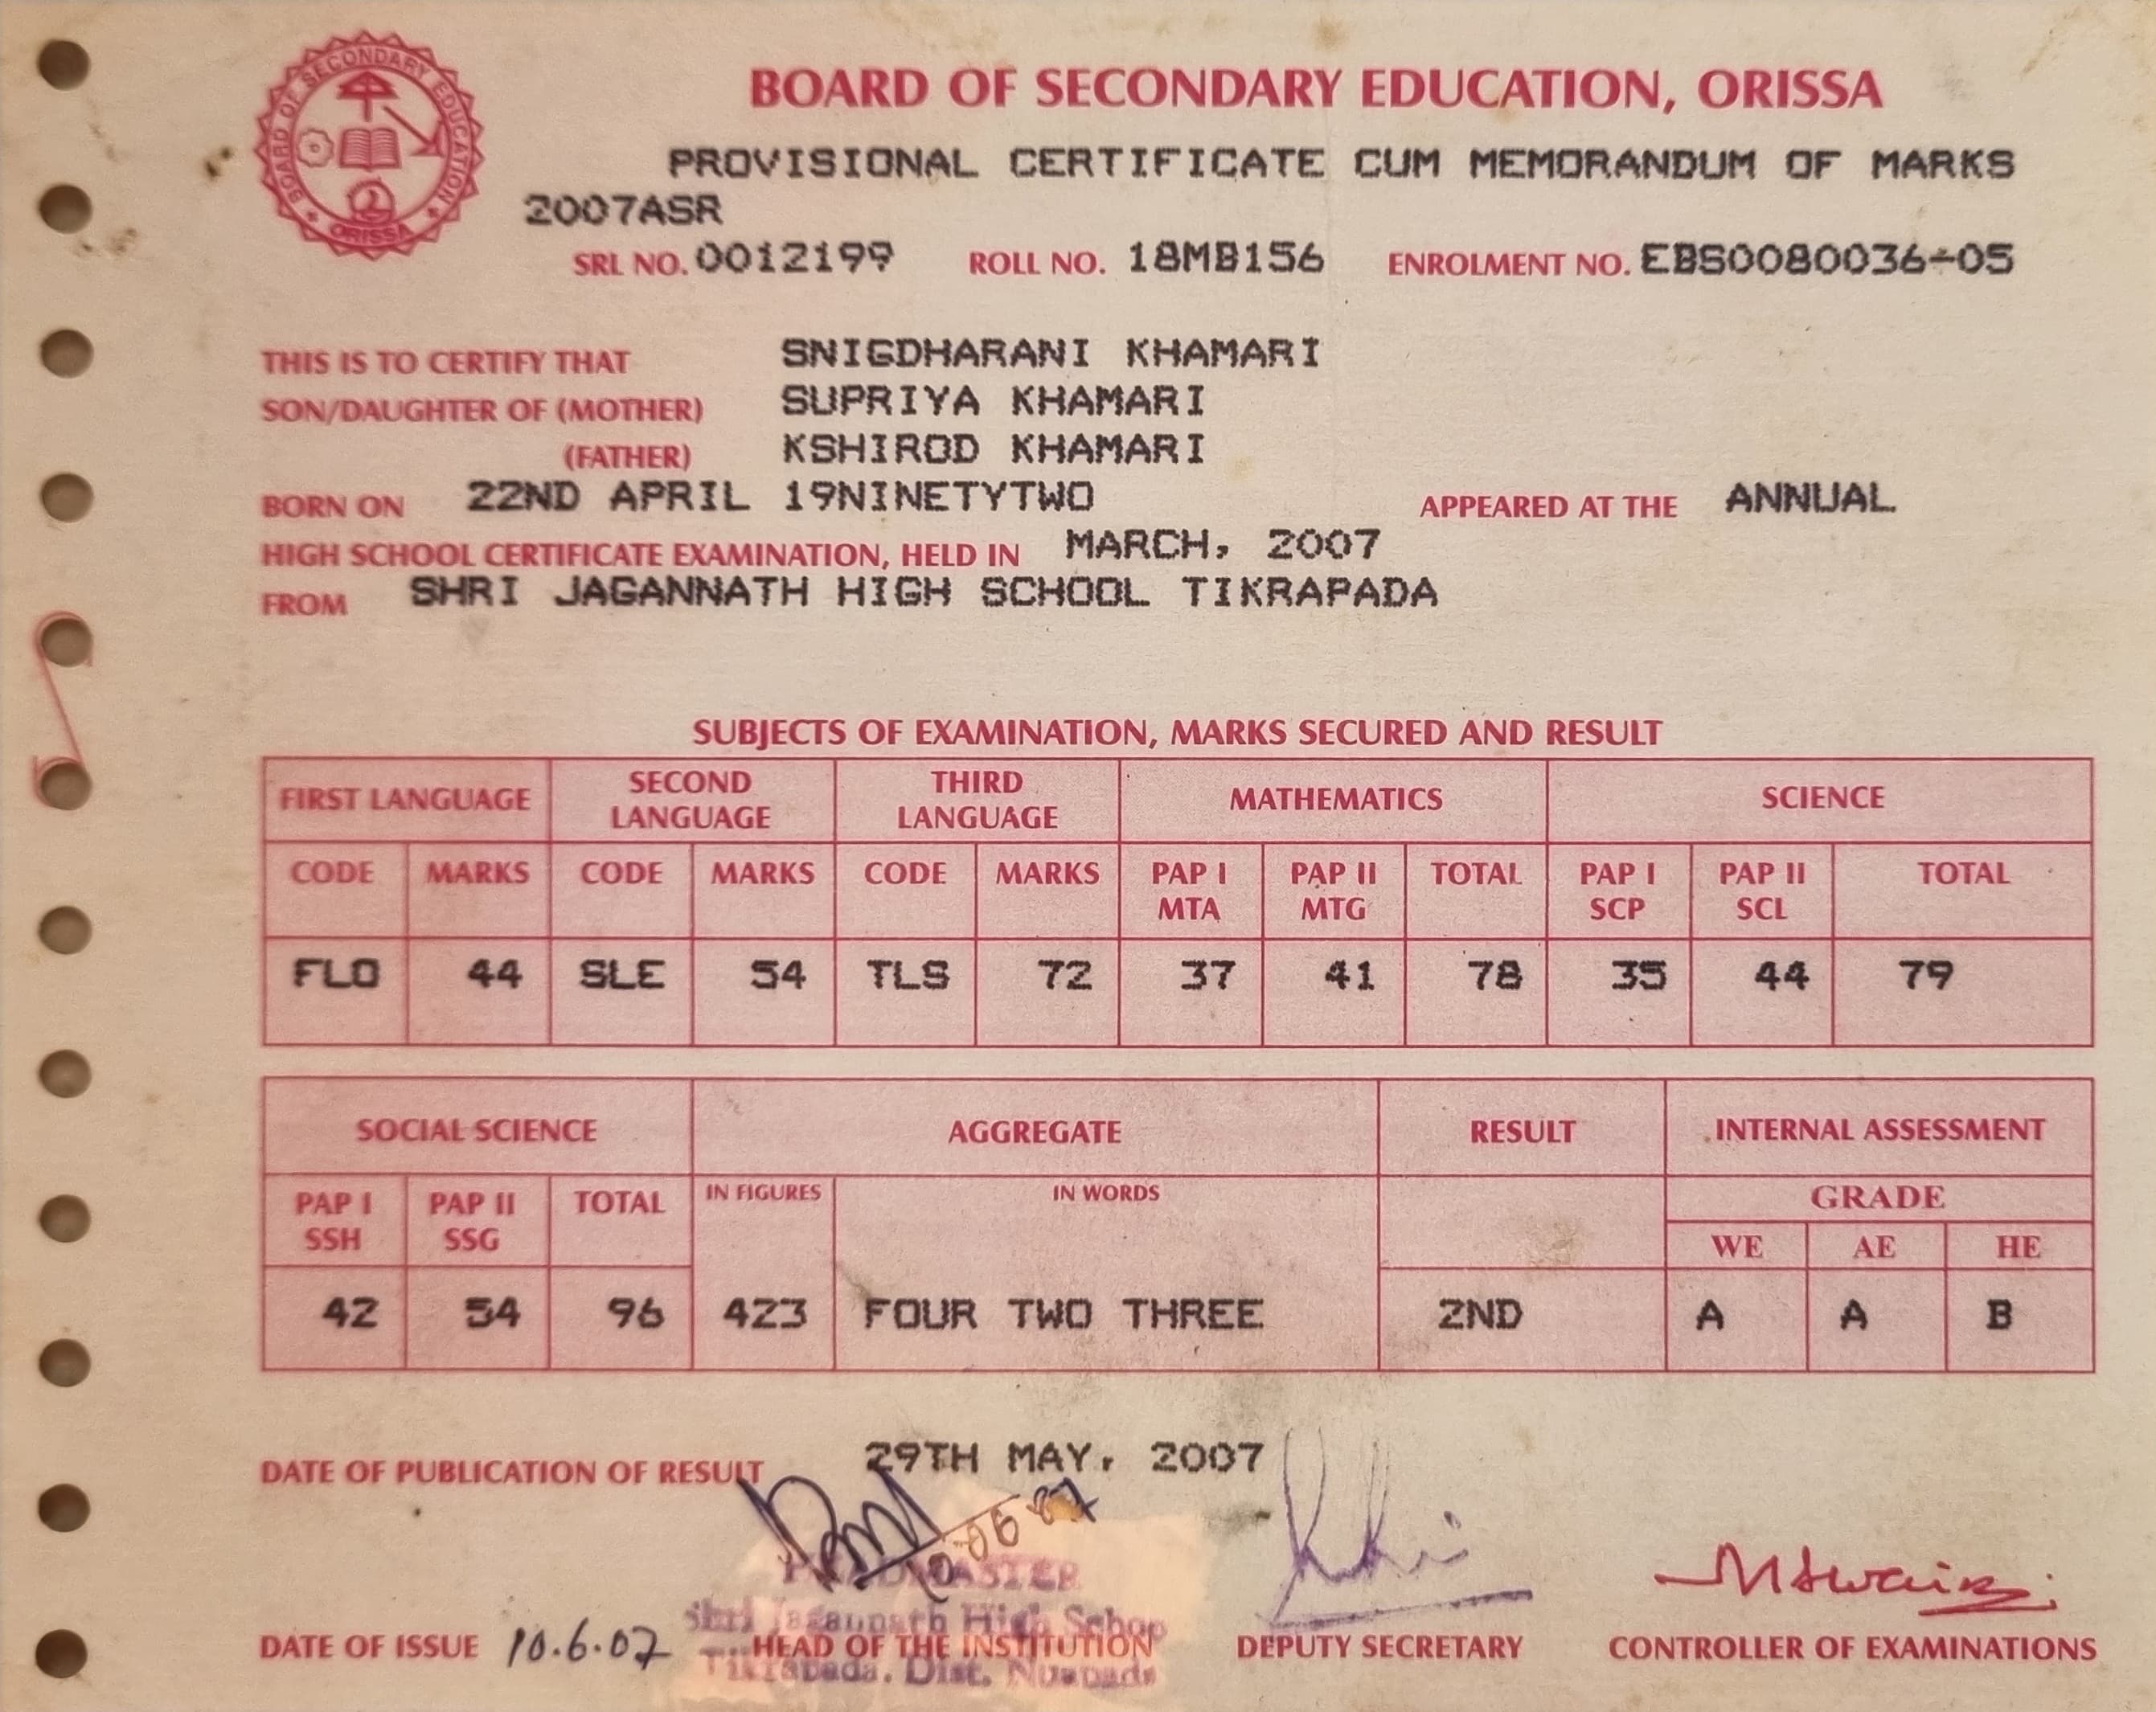 BOARD OF SECONDARY EDUCATION
ORISSA
BOARD OF SECONDARY EDUCATION, ORISSA
PROVISIONAL CERTIFICATE CUM MEMORANDUM OF MARKS
2007ASR
SRL NO. 0012199 ROLL NO. 18MB156 ENROLMENT NO. EBS0080036-05
THIS IS TO CERTIFY THAT SNIGDHARANI KHAMARI
SON/DAUGHTER OF (MOTHER) SUPRIYA KHAMARI
(FATHER) KSHIROD KHAMARI
BORN ON 22ND APRIL 19NINETYTWO APPEARED AT THE ANNUAL
HIGH SCHOOL CERTIFICATE EXAMINATION, HELD IN MARCH, 2007
FROM SHRI JAGANNATH HIGH SCHOOL TIKRAPADA
SUBJECTS OF EXAMINATION, MARKS SECURED AND RESULT
FIRST LANGUAGE SECOND LANGUAGE THIRD LANGUAGE MATHEMATICS SCIENCE
CODE MARKS CODE MARKS CODE MARKS PAP I MTA PAP II MTG TOTAL PAP I SCP PAP II SCL TOTAL
FLO 44 SLE 54 TLS 72 37 41 78 35 44 79
SOCIAL SCIENCE AGGREGATE RESULT INTERNAL ASSESSMENT
PAP I SSH PAP II SSG TOTAL IN FIGURES IN WORDS GRADE
WE AE HE
42 54 96 423 FOUR TWO THREE 2ND A A B
DATE OF PUBLICATION OF RESULT 29TH MAY, 2007
10.06.07
HEADMASTER
Shri Jagannath High Schoo
Tikrapada. Dist. Nuapada
DATE OF ISSUE 10.6.07 HEAD OF THE INSTITUTION DEPUTY SECRETARY CONTROLLER OF EXAMINATIONS